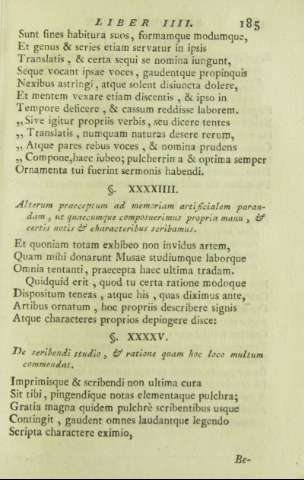 LIBER IIII. 185
Sunt fines habitura suos, formamque modumque,
Et genus & series etiam servatur in ipsis
Translatis, & certa sequi se nomina iungunt,
Seque vocant ipsae voces, gaudentque propinquis
Nexibus astringi, atque solent disiuncta dolere,
Et mentem vexare etiam discentis, & ipso in
Tempore deficere, & cassum reddisse laborem.
„Sive igitur propriis verbis, seu dicere tentes
„Translatis, numquam naturas desere rerum,
„Atque pares rebus voces, & nomina prudens
„Compone, haec iubeo; pulcherrim a & optima semper
Ornamenta tui fuerint sermonis habendi.
§. XXXXIIII.
Alterum praeceptum ad memoriam artificialem paran-
dam, ut quaecumque composuerimus propria manu, &
certis notis & characteribus scribamus.
Et quoniam totam exhibeo non invidus artem,
Quam mihi donarunt Musae studiumque laborque
Omnia tentanti, praecepta haec ultima tradam.
Quidquid erit, quod tu certa ratione modoque
Dispositum teneas, atque his, quas diximus ante,
Artibus ornatum, hoc propriis describere signis
Atque characteres proprios depingere disce:
§. XXXXV.
De scribendi studio, & ratione quam hoc loco multum
commendat.
Imprimisque & scribendi non ultima cura
Sit tibi, pingendique notas elementaque pulchra;
Gratia magna quidem pulchrè scribentibus usque
Contingit, gaudent omnes laudantque legendo
Scripta charactere eximio,
Be-